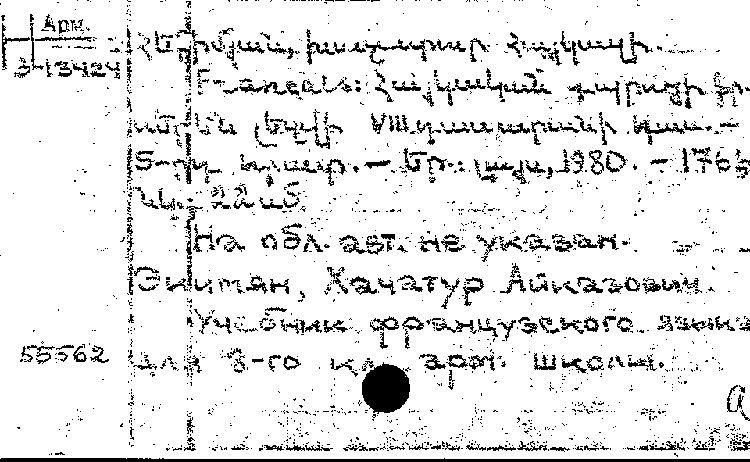 Арм.
3-13424
Հեքիմյան, Խաչատուր Հայկազի.
Français: Հայկական դպրոցի ֆր-
աներեն լեզվի VIII դասարանի դաս. -
5-րդ հրատ. - Եր.: Լույս, 1980. - 176 էջ
նկ. 22 սմ
На обл. авт. не указан.
Экимян, Хачатур Айказович.
Учебник французского языка
55562 для 8-го кл. арм. школы.
а